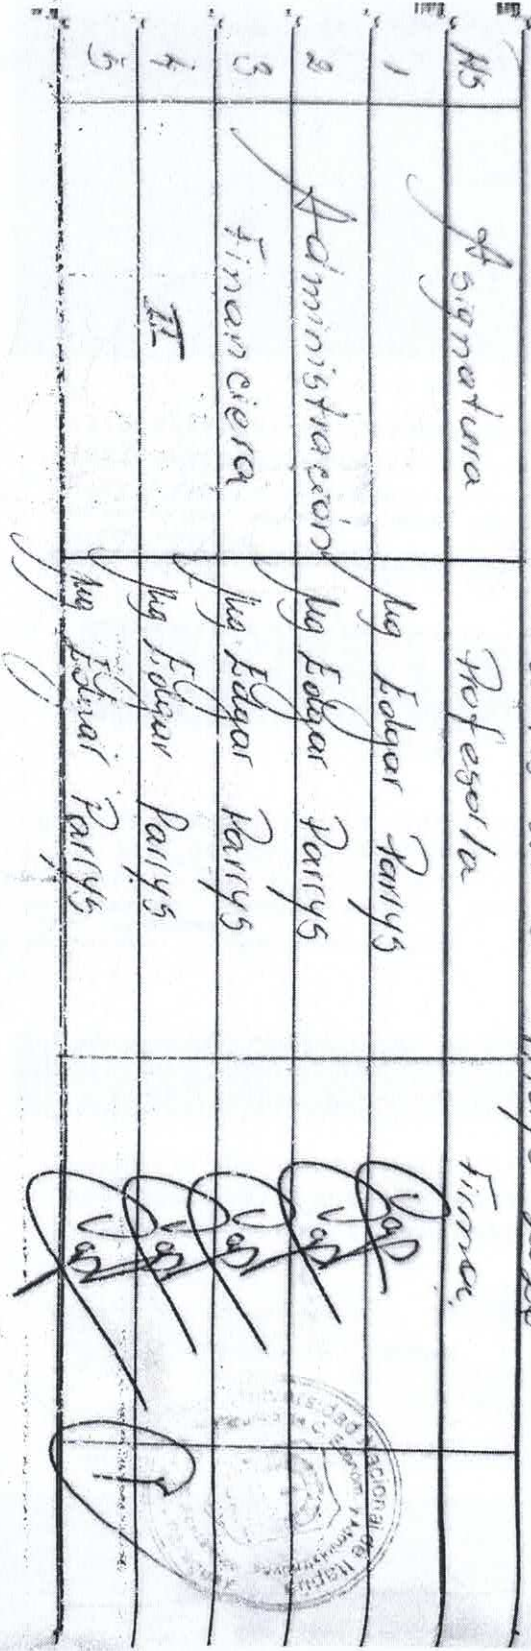 Nº Asignatura Profesor/a Firma
1 Mg Edgar Parrys
2 Administración Mg Edgar Parrys
3 Financiera Mg Edgar Parrys
4 II Mg Edgar Parrys
5 Mg Edgar Parrys
Universidad Nacional de Itapúa